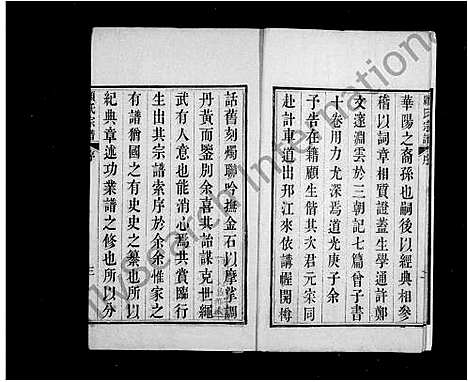 華陽之裔孫也嗣後以經典相參
稽以詞章相質證蓋生學通許鄭
文達淵雲於三朝記七篇曾子書
十卷用力尤深焉道光庚子余
子告在籍顧生偕其次君元宋同
赴計車道出邗江來依講幄開樽
話舊刻燭聯吟撫金石以摩挲調
丹黃而鑒別余喜其詒謀克世繩
武有人意也能消
為共賞臨行
生出其宗譜索序於余余惟家之
有譜猶國之有史史之纂也所以
紀典章述功業譜之修也所以分
宗譜 序
氏宗譜 序
三
FamilySearch International